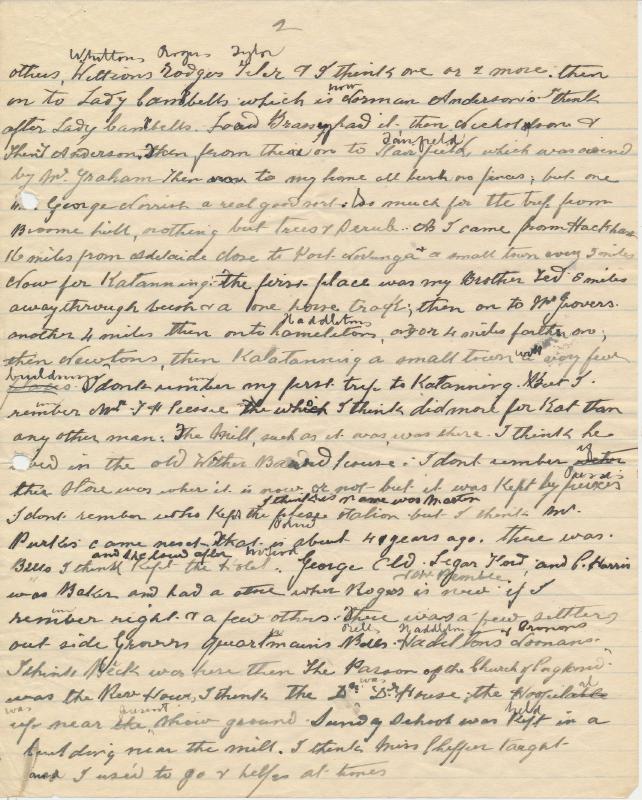 2
Whittons Rogers Tylor
others, Wittions Rodges Teler & I think one or 2 more. then
now
on to Lady Cambells which is Norman Anderson's I think
after Lady Cambells. Load Brassey had it then Nicholsson &
then Anderson, Then from there on to Fairfield
Fairfield, which was owend
by Mr Graham Then on to my home all bush no fences; but one
Mr. George Norrish a real good sort. So much for the trip from
Broome hill, nothing but trees & Scrub. As I came from Hackham
16 miles from Adelaide close to Port Noolunga & a small town every 3 miles
Now for Katanning: the first place was my Brother Ted. 5 miles
away through bush & a one horse track; then on to Mr Grovers.
Haddletons
another 4 miles then onto Hameletons, 3 or 4 miles farther on;
with
then Newtons, then Kalatanning a small town a very few
buildings
places. I dont rember my first trip to Katanning. But I
rember Mr. F H Piessie the which I think did more for Kat than
any other man: The Mill, such as it was, was there. I think he
lived in the old Wither Board house: I dont rember if
this Store was wher it is now or not but it was kept by pierces
I think is name was Martin
I dont rember who kept the police station but I think Mr.
Purkis came next. That is about 40 years ago. there was.
and the land after
Bells I think kept the Hotel. George Cld. Segar Ford, and P. Harris
was Baker and had a store wher Rogers is now if I
rember right. & a few others. There was a few settlers
out side Grovers Quartmains Bells. Haddltons Noonans.
I think Beck was here then The Parson of the Church of England
was the Rev Howes, I think the Drs House; the Hospital
was present
up near the Show ground. Sunday School was Kept in a
held
building near the mill. I think Miss Pheffer taught
and I used to go & help at times